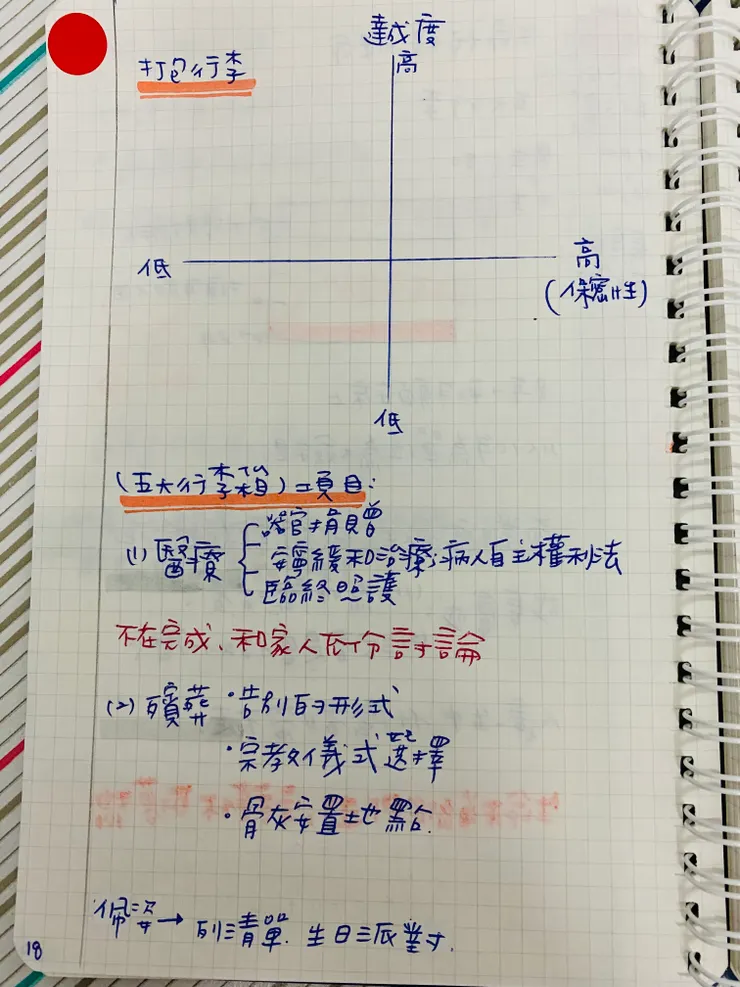 打包行李
達成度
高
低
高
(保密性)
低
(五大行李箱)項目:
(1) 醫療
器官捐贈
安寧緩和治療;病人自主權利法
臨終照護
不在完成、和家人充份討論
(2) 殯葬
·告別的形式
·宗教儀式選擇
·骨灰安置地點.
佩姿→列清單. 生日派對.
18